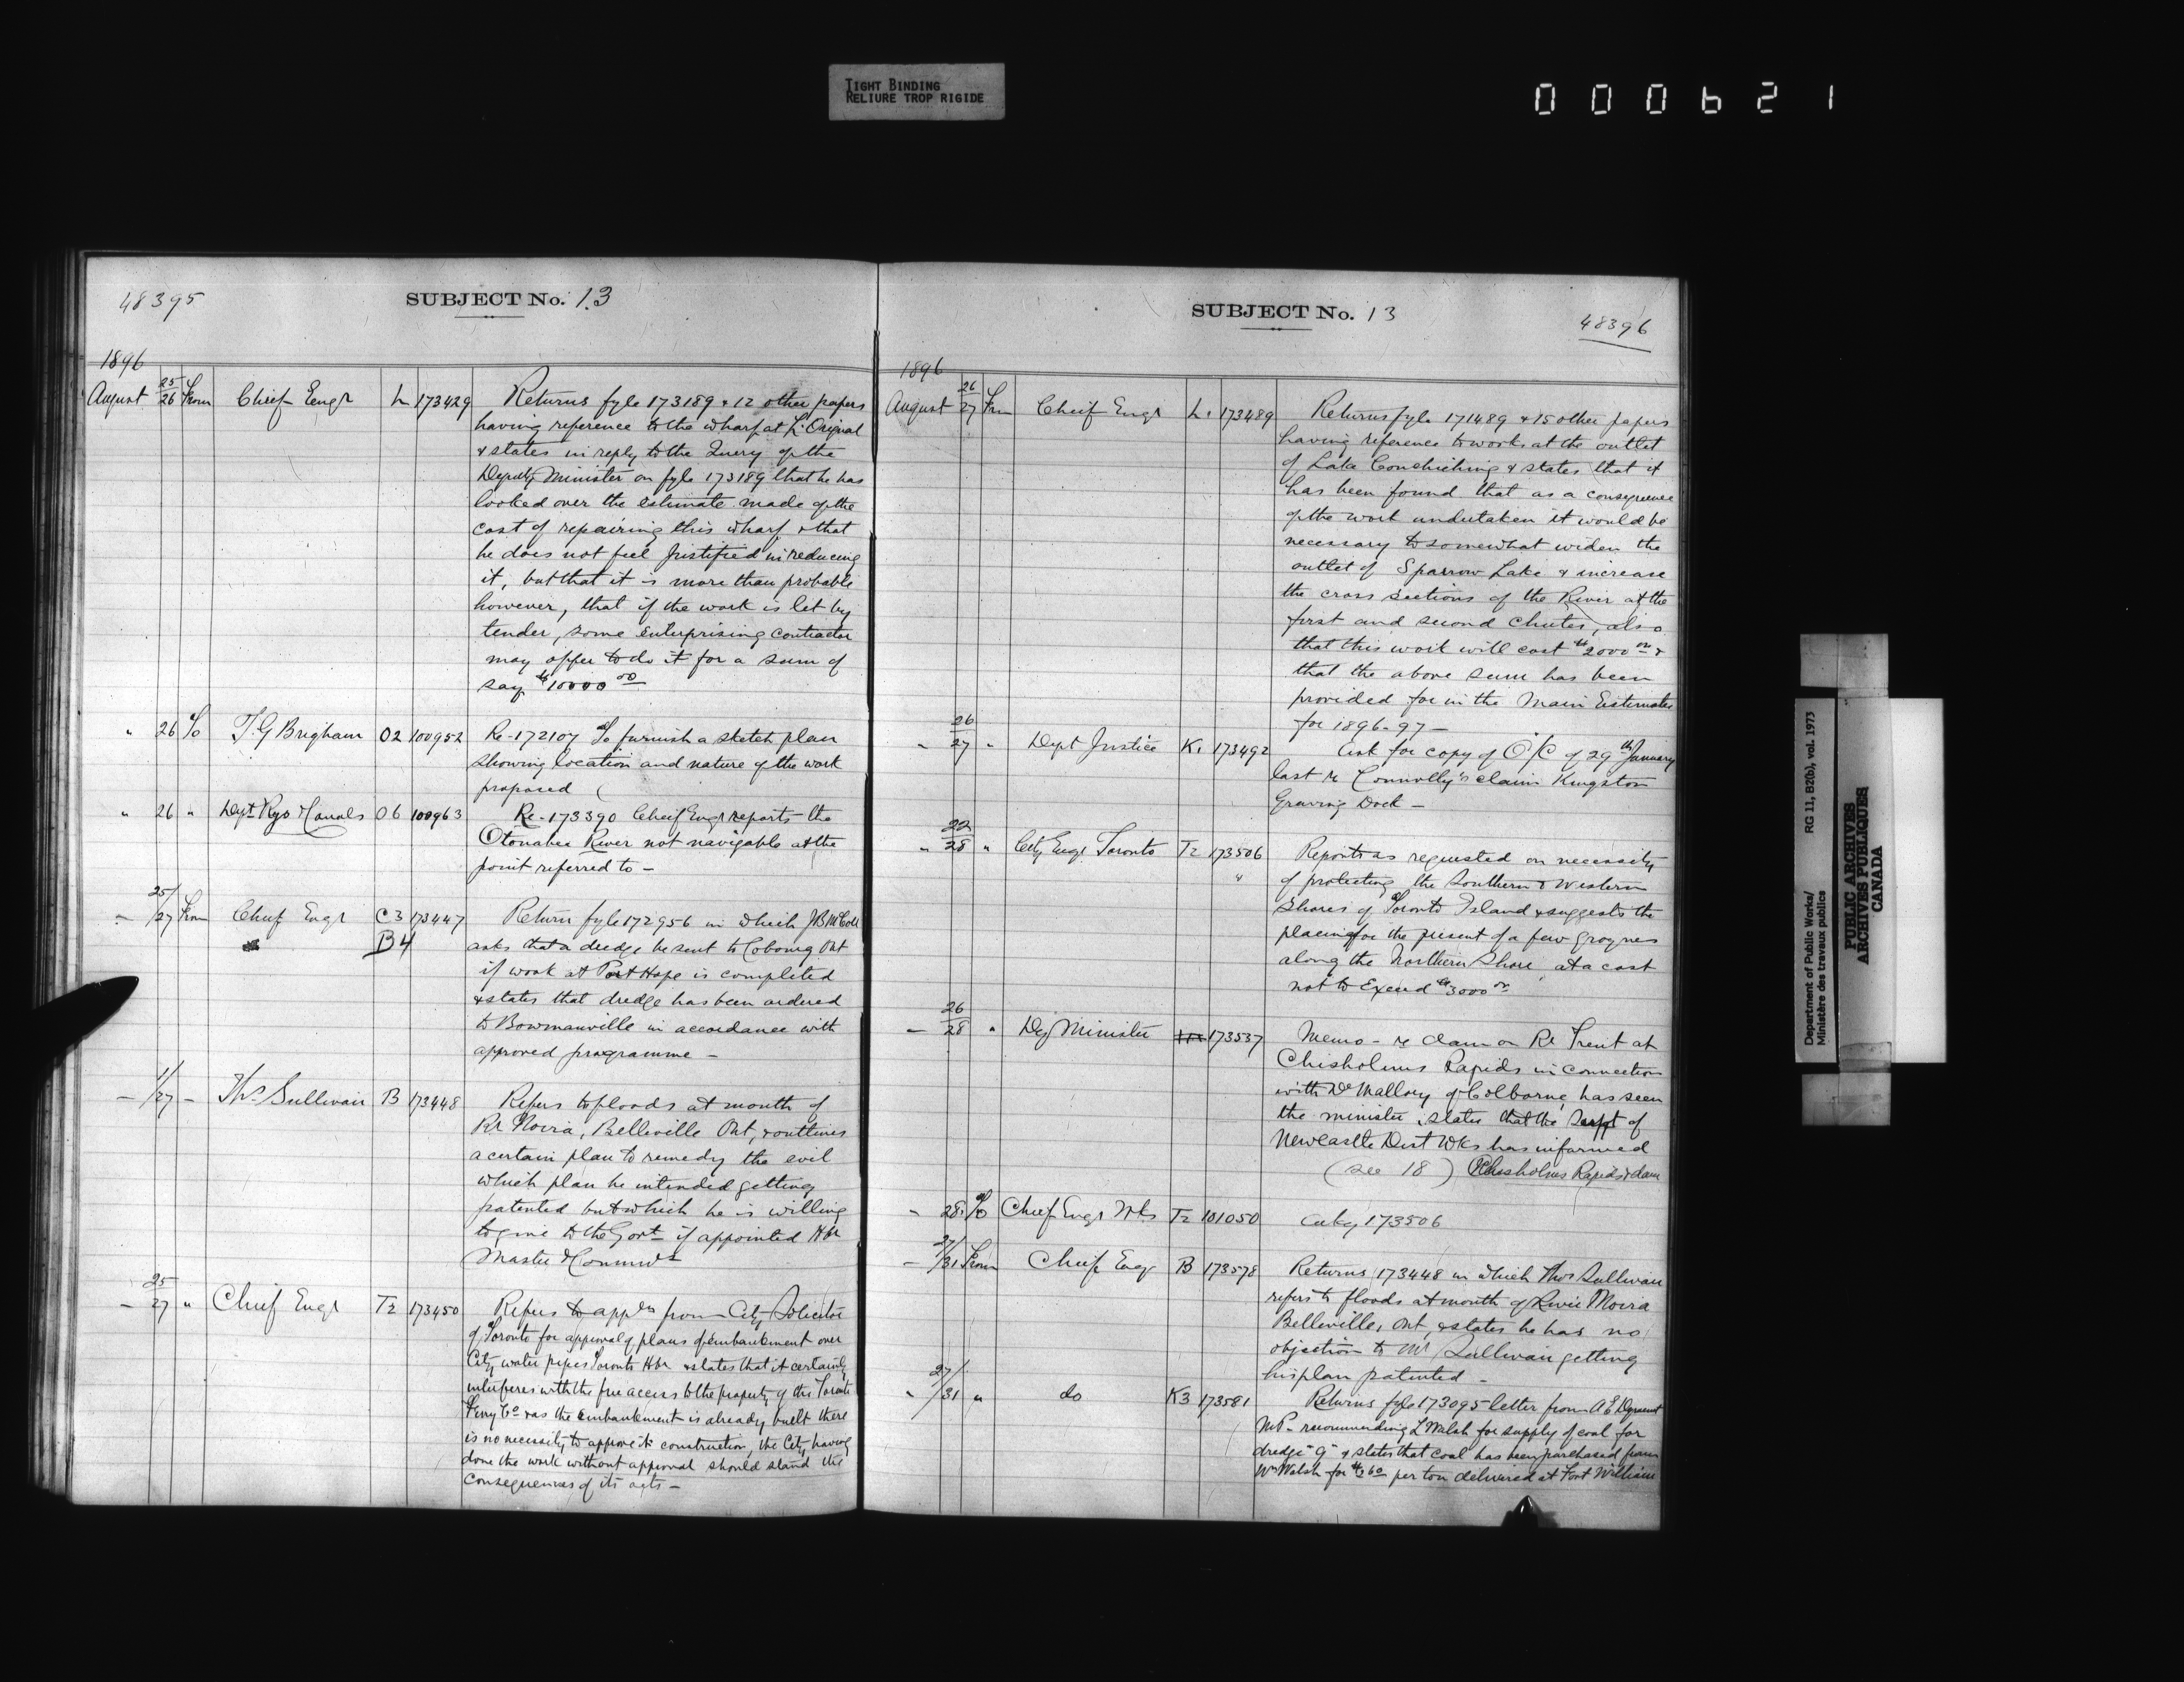 TIGHT BINDING
RELIURE TROP RIGIDE
000621
48395
SUBJECT No. 13
1896
August 25/26 From Chief Engr L 173429 Returns fyle 173189 & 12 other papers
having reference to the wharf at L'Orignal
& states in reply to the Query of the
Deputy Minister on fyle 173189 that he has
looked over the estimate made of the
cost of repairing this wharf & that
he does not feel justified in reducing
it, but that it is more than probable
however, that if the work is let by
tender, some enterprising contractor
may offer to do it for a sum of
say $10000 00
" 26 To T. G Brigham O2 100952 Re-172107 To furnish a sketch plan
showing location and nature of the work
proposed
" 26 " Dept Rys & Canals O6 100963 Re-173390 Cheif Engr reports the
Otonabee River not navigable at the
point referred to —
— 25/27 From Chief Engr C3 173447 Return fyle 172956 in which JB McColl
B4 asks that a dredge be sent to Cobourg Ont
if work at Port Hope is completed
& states that dredge has been ordered
to Bowmanville in accordance with
approved programme —
— 1/27 — Thos Sullivan B 173448 Refers to floods at mouth of
Rr Moira, Belleville Ont, & outlines
a certain plan to remedy the evil
which plan he intended getting
patented but which he is willing
to give to the Govt if appointed Hbr
Master
— 25/27 " Chief Engr T2 173450 Refers to appln from City Solicitor
of Toronto for approval of plans of embankment over
City water pipes Toronto Hbr & states that it certainly
interferes with the free access to the property of the Toronto
Ferry Co & as the embankment is already built there
is no necessity to approve its construction, the City having
done the work without approval should stand the
consequences of its acts —
SUBJECT No. 13
48396
1896
August 26/27 From Cheif Engr L. 173489 Returns fyle 171489 & 15 other papers
having reference to works at the outlet
of Lake Couchiching & states that it
has been found that as a consequence
of the work undertaken it would be
necessary to somewhat widen the
outlet of Sparrow Lake & increase
the cross sections of the River at the
first and second chutes, also
that this work will cost $2000 00 &
that the above sum has been
provided for in the Main Estimates
for 1896-97 —
" 26/27 " Dept Justice K. 173492 Ask for copy of O/C of 29th January
last re Connolly's claim Kingston
Graving Dock —
" 22/28 " City Engr Toronto T2 173506 Reports as requested on necessity
" of protecting the Southern & Western
Shores of Toronto Island & suggests the
placing for the present of a few groynes
along the Northern Shore, at a cost
not to Exceed $3000 00
— 26/28 " Dey Minister 173537 Memo — re dam on Rr Trent at
Chisholms Rapids in connection
with Dr Mallory of Colborne has seen
the minister, states that the Supt of
Newcastle Dist Wks has informed
(see 18) Chisholms Rapids & dam
" 28 To Chief Engr Wks T2 101050 173506
— 27/31 From Cheif Engr B 173578 Returns 173448 in which Thos Sullivan
refers to floods at mouth of River Moira
Belleville, Ont, & states he has no
objection to Mr Sullivan getting
his plan patented —
" 27/31 " do K3 173581 Returns fyle 173095 letter from A E Dyment
M P — recommending L Walsh for supply of coal for
dredge "G" & states that coal has been purchased from
Wm Walsh for $2 60 per ton delivered at Fort William
Department of Public Works/ RG 11, B2(b), vol. 1973
Ministère des travaux publics
PUBLIC ARCHIVES
ARCHIVES PUBLIQUES
CANADA